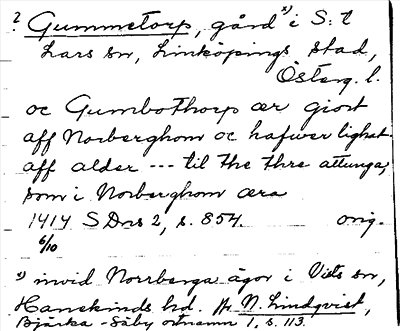 2 Gummetorp, gård x) i S:t
Lars sn, Linköpings stad,
Österg. l.
oc Gumbothorp ær giort
aff Norberghom oc hafwer lighat
aff alder --- til the thre attunga,
som i Norberghom æra
1414 SDns 2, s. 854. orig.
6/10
x) invid Norrberga ägor i Vists sn,
Hanekinds hd. Fr. N. Lindqvist,
Bjärka-Säby ortnamn 1, s. 113.